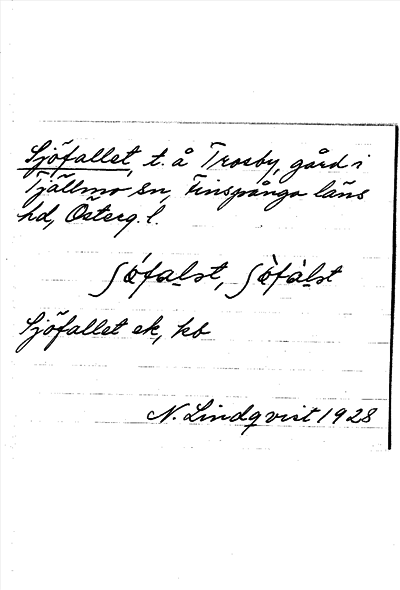 Sjöfallet, t. å Trosby, gård i
Tjällmo sn, Finspånga läns
hd, Österg. l.
ʃǿfalet, ʃø̀fàlet
Sjöfallet ek, kb
N. Lindqvist 1928